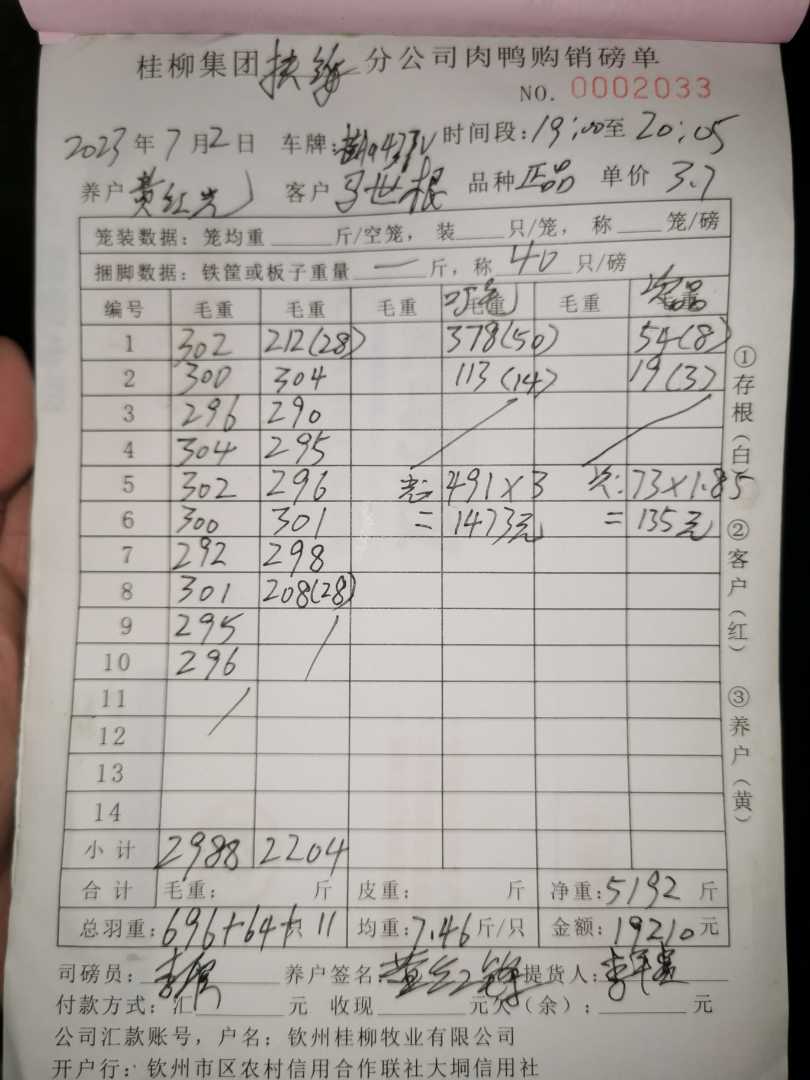 桂柳集团扶绥分公司肉鸭购销磅单
NO. 0002033
2023年7月2日 车牌: 时间段:19:00至20:05
养户黄红 客户马世根 品种正品 单价3.7
笼装数据:笼均重____斤/空笼,装____只/笼,称____笼/磅
捆脚数据:铁筐或板子重量一斤,称40只/磅
编号 毛重 毛重 毛重 毛重 毛重 次品
1 302 212(28) 378(50) 54(8)
2 300 304 113(14) 19(3)
3 296 290
4 304 295
5 302 296 491×3 次:73×1.85
6 300 301 =1473元 =135元
7 292 298
8 301 208(28)
9 295
10 296
11
12
13
14
小计 2988 2204
合计 毛重: 斤 皮重: 斤 净重:5192斤
总羽重:696+64+11 均重:7.46斤/只 金额:19210元
司磅员: 养户签名: 提货人:
付款方式:汇____元 收现____元欠(余):____元
公司汇款账号,户名:钦州桂柳牧业有限公司
开户行:钦州市区农村信用合作联社大垌信用社
①存根(白) ②客户(红) ③养户(黄)